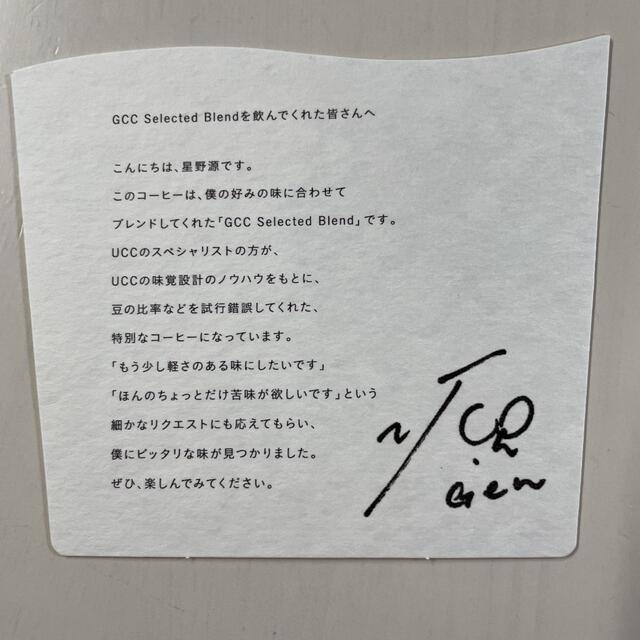 GCC Selected Blendを飲んでくれた皆さんへ
こんにちは、星野源です。
このコーヒーは、僕の好みの味に合わせて
ブレンドしてくれた「GCC Selected Blend」です。
UCCのスペシャリストの方が、
UCCの味覚設計のノウハウをもとに、
豆の比率などを試行錯誤してくれた、
特別なコーヒーになっています。
「もう少し軽さのある味にしたいです」
「ほんのちょっとだけ苦味が欲しいです」という
細かなリクエストにも応えてもらい、
僕にピッタリな味が見つかりました。
ぜひ、楽しんでみてください。